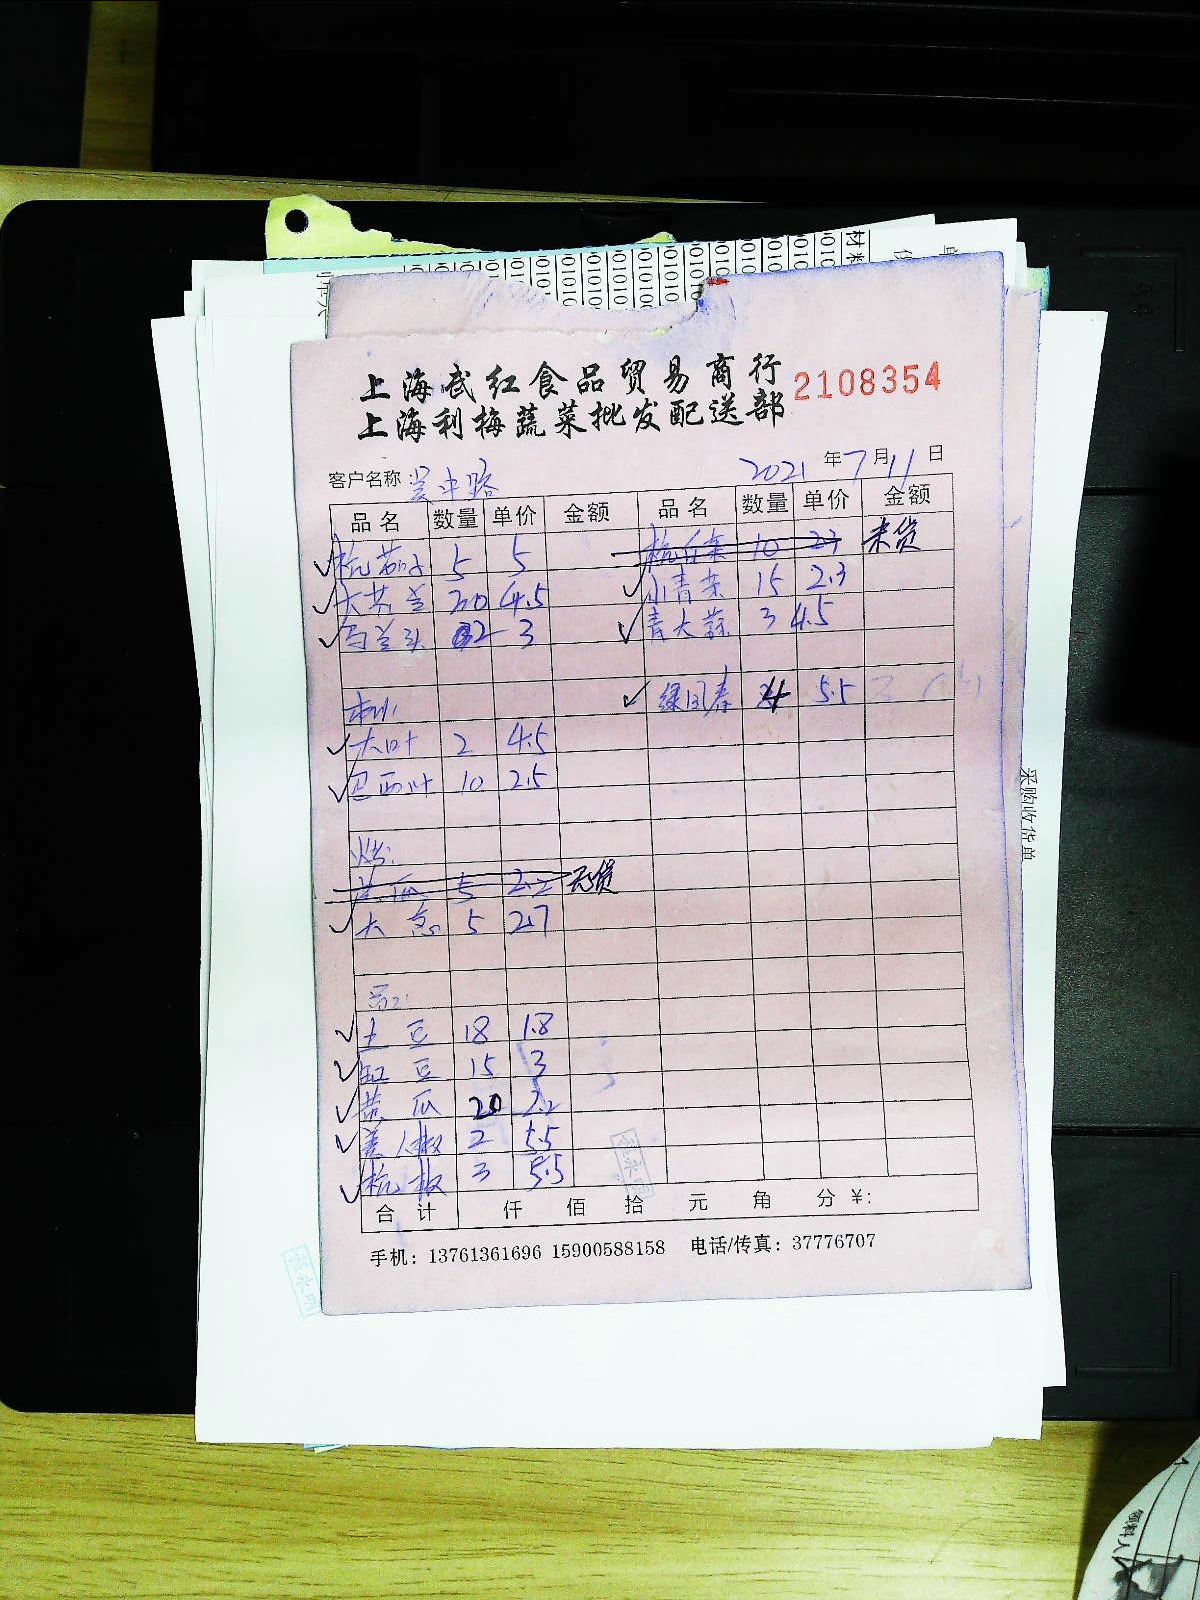 上海武红食品贸易商行
上海利梅蔬菜批发配送部
2108354
客户名称: 吴中路 2021年7月11日
品名 数量 单价 金额 品名 数量 单价 金额
杭茄子 5 5 10 23 未货
20 4.5 小青菜 15 2.3
2 3 青大蒜 3 4.5
4 5.5
大叶 2 4.5
巴西叶 10 2.5
黄瓜 5 2.2 无货
大葱 5 2.7
土豆 18 1.8
豆 15 3
黄瓜 20 2.2
美人椒 2 5.5
杭椒 3 5.5
合计 仟 佰 拾 元 角 分 ¥:
手机: 13761361696 15900588158 电话/传真: 37776707
采购收货单
领料人